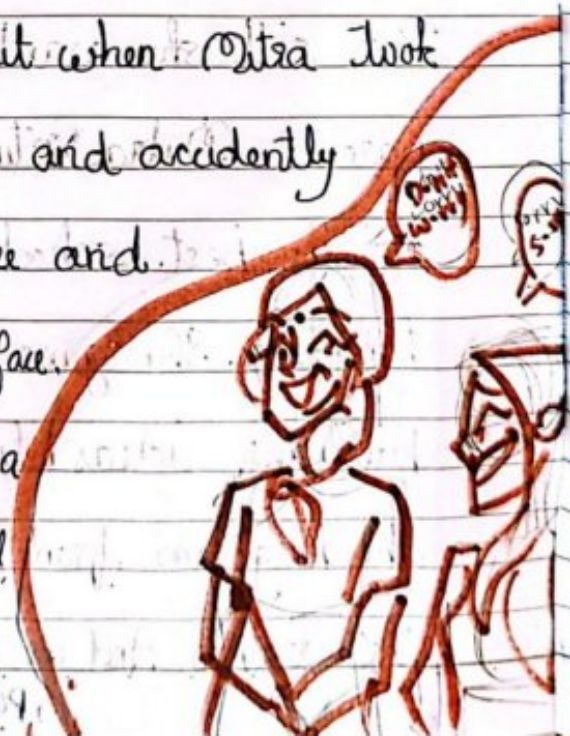 it when Mitra Twok
and accidently
and.
face.
a
Don't
worry
Sorry